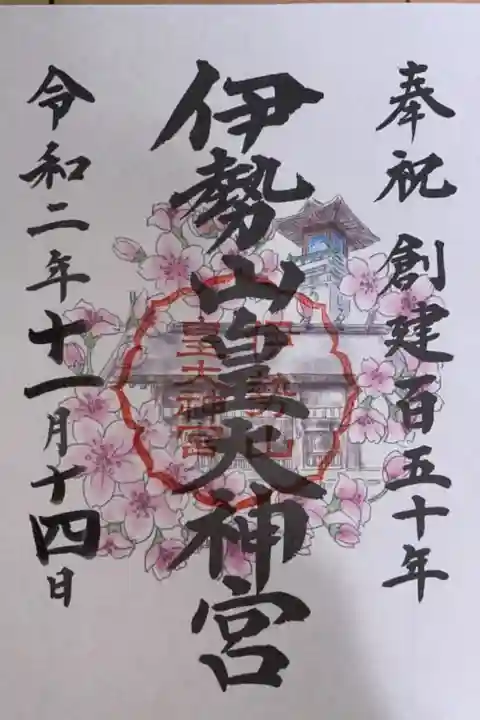 奉祝 創建百五十年
伊勢山皇大神宮
伊勢山
皇大神宮
令和二年十一月十四日